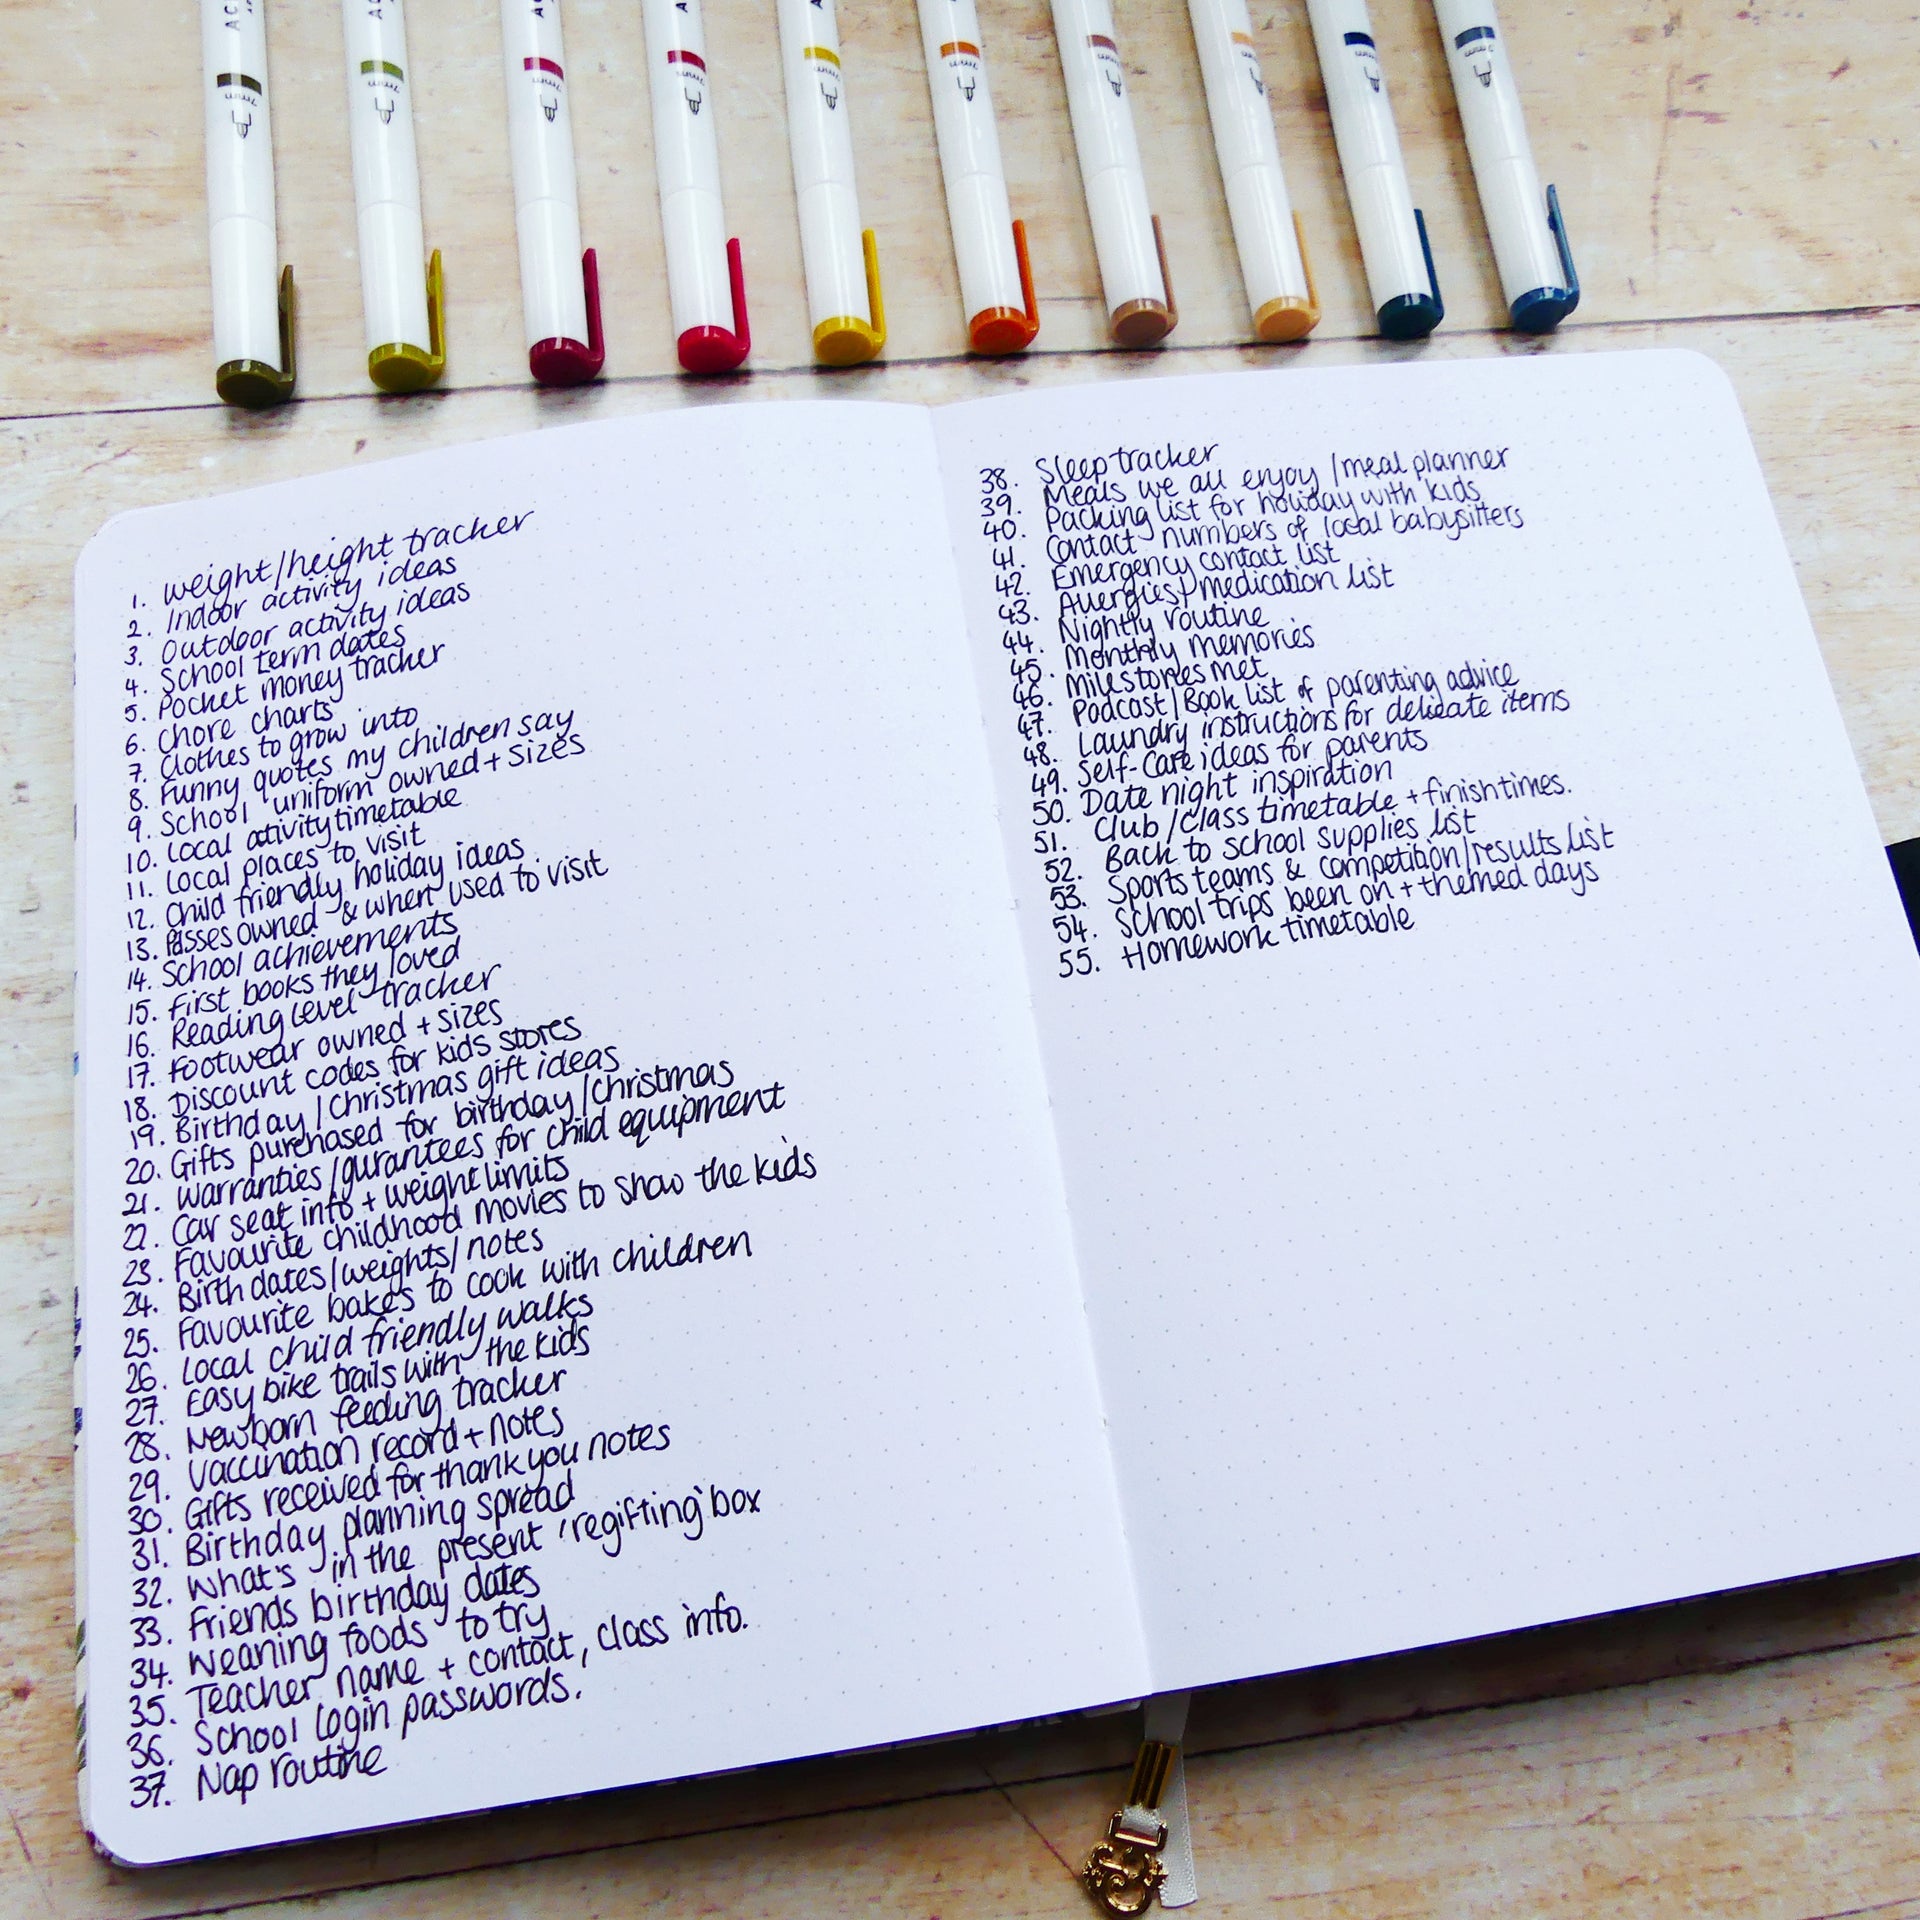 AC
AC
AC
A
A
A
3mm
3mm
3mm
3mm
3mm
3mm
3mm
3mm
3mm
3mm
1. Weight/height tracker
2. Indoor activity ideas
3. Outdoor activity ideas
4. School term dates
5. Pocket money tracker
6. Chore charts
7. Clothes to grow into
8. Funny quotes my children say
9. School uniform owned + sizes
10. Local activity timetable
11. Local places to visit
12. Child friendly holiday ideas
13. Passes owned & when used to visit
14. School achievements
15. First books they loved
16. Reading Level tracker
17. Footwear owned + sizes
18. Discount codes for kids stores
19. Birthday / Christmas gift ideas
20. Gifts purchased for birthday / Christmas
21. Warranties / gurantees for child equipment
22. Car seat info + weight limits
23. Favourite childhood movies to show the kids
24. Birth dates / weights / notes
25. Favourite bakes to cook with children
26. Local child friendly walks
27. Easy bike trails with the kids
28. Newborn feeding tracker
29. Vaccination record + notes
30. Gifts received for thank you notes
31. Birthday planning spread
32. What's in the present 'regifting' box
33. Friends birthday dates
34. Weaning foods to try
35. Teacher name + contact, class info.
36. School login passwords.
37. Nap routine
38. Sleep tracker
39. Meals we all enjoy / meal planner
40. Packing list for holiday with kids
41. Contact numbers of local babysitters
42. Emergency contact list
43. Allergies / medication list
44. Nightly routine
45. Monthly memories
46. Milestones met
47. Podcast / Book list of parenting advice
48. Laundry instructions for delicate items
49. Self-Care ideas for parents
50. Date night inspiration
51. Club / Class timetable + finish times.
52. Back to school supplies list
53. Sports teams & competition / results list
54. School trips been on + themed days
55. Homework timetable